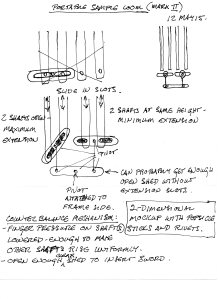 PORTABLE SAMPLE LOOM (MARK II)
12 MAY 15.
SLIDE IN SLOTS.
2 SHAFTS OPEN -
MAXIMUM
EXTENSION
2 SHAFTS AT SAME HEIGHT -
MINIMUM EXTENSION
PIVOT
PIVOT
ATTACHED TO
FRAME SIDE.
CAN PROBABLY GET ENOUGH
OPEN SHED WITHOUT
EXTENSION SLOTS.
COUNTERBALANCE MECHANISM:
- FINGER PRESSURE ON SHAFTS
LOWERED - ENOUGH TO MAKE
OTHER SHAFTS RISE UNIFORMLY.
- OPEN ENOUGH SHED TO INSERT SWORD.
2-DIMENSIONAL
MOCKUP WITH POPSICLE
STICKS AND RIVETS.